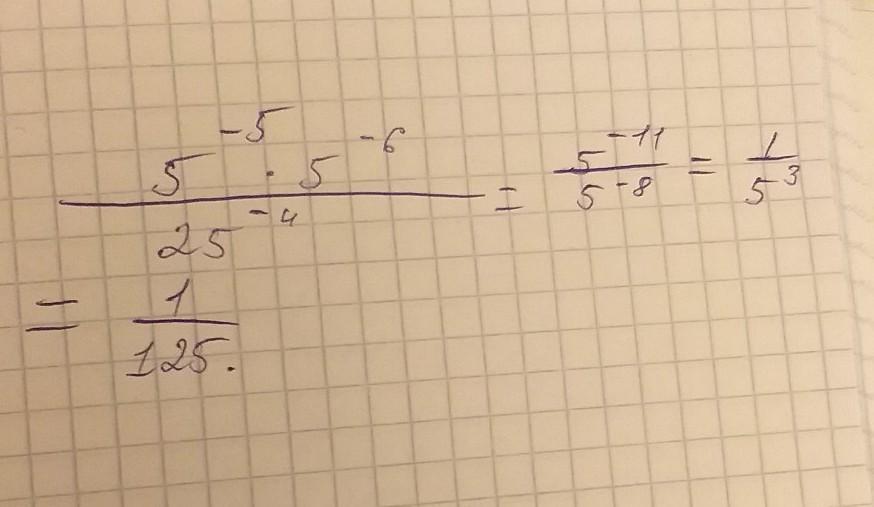 \frac{5^{-5} \cdot 5^{-6}}{25^{-4}} = \frac{5^{-11}}{5^{-8}} = \frac{1}{5^3}
= \frac{1}{125}.